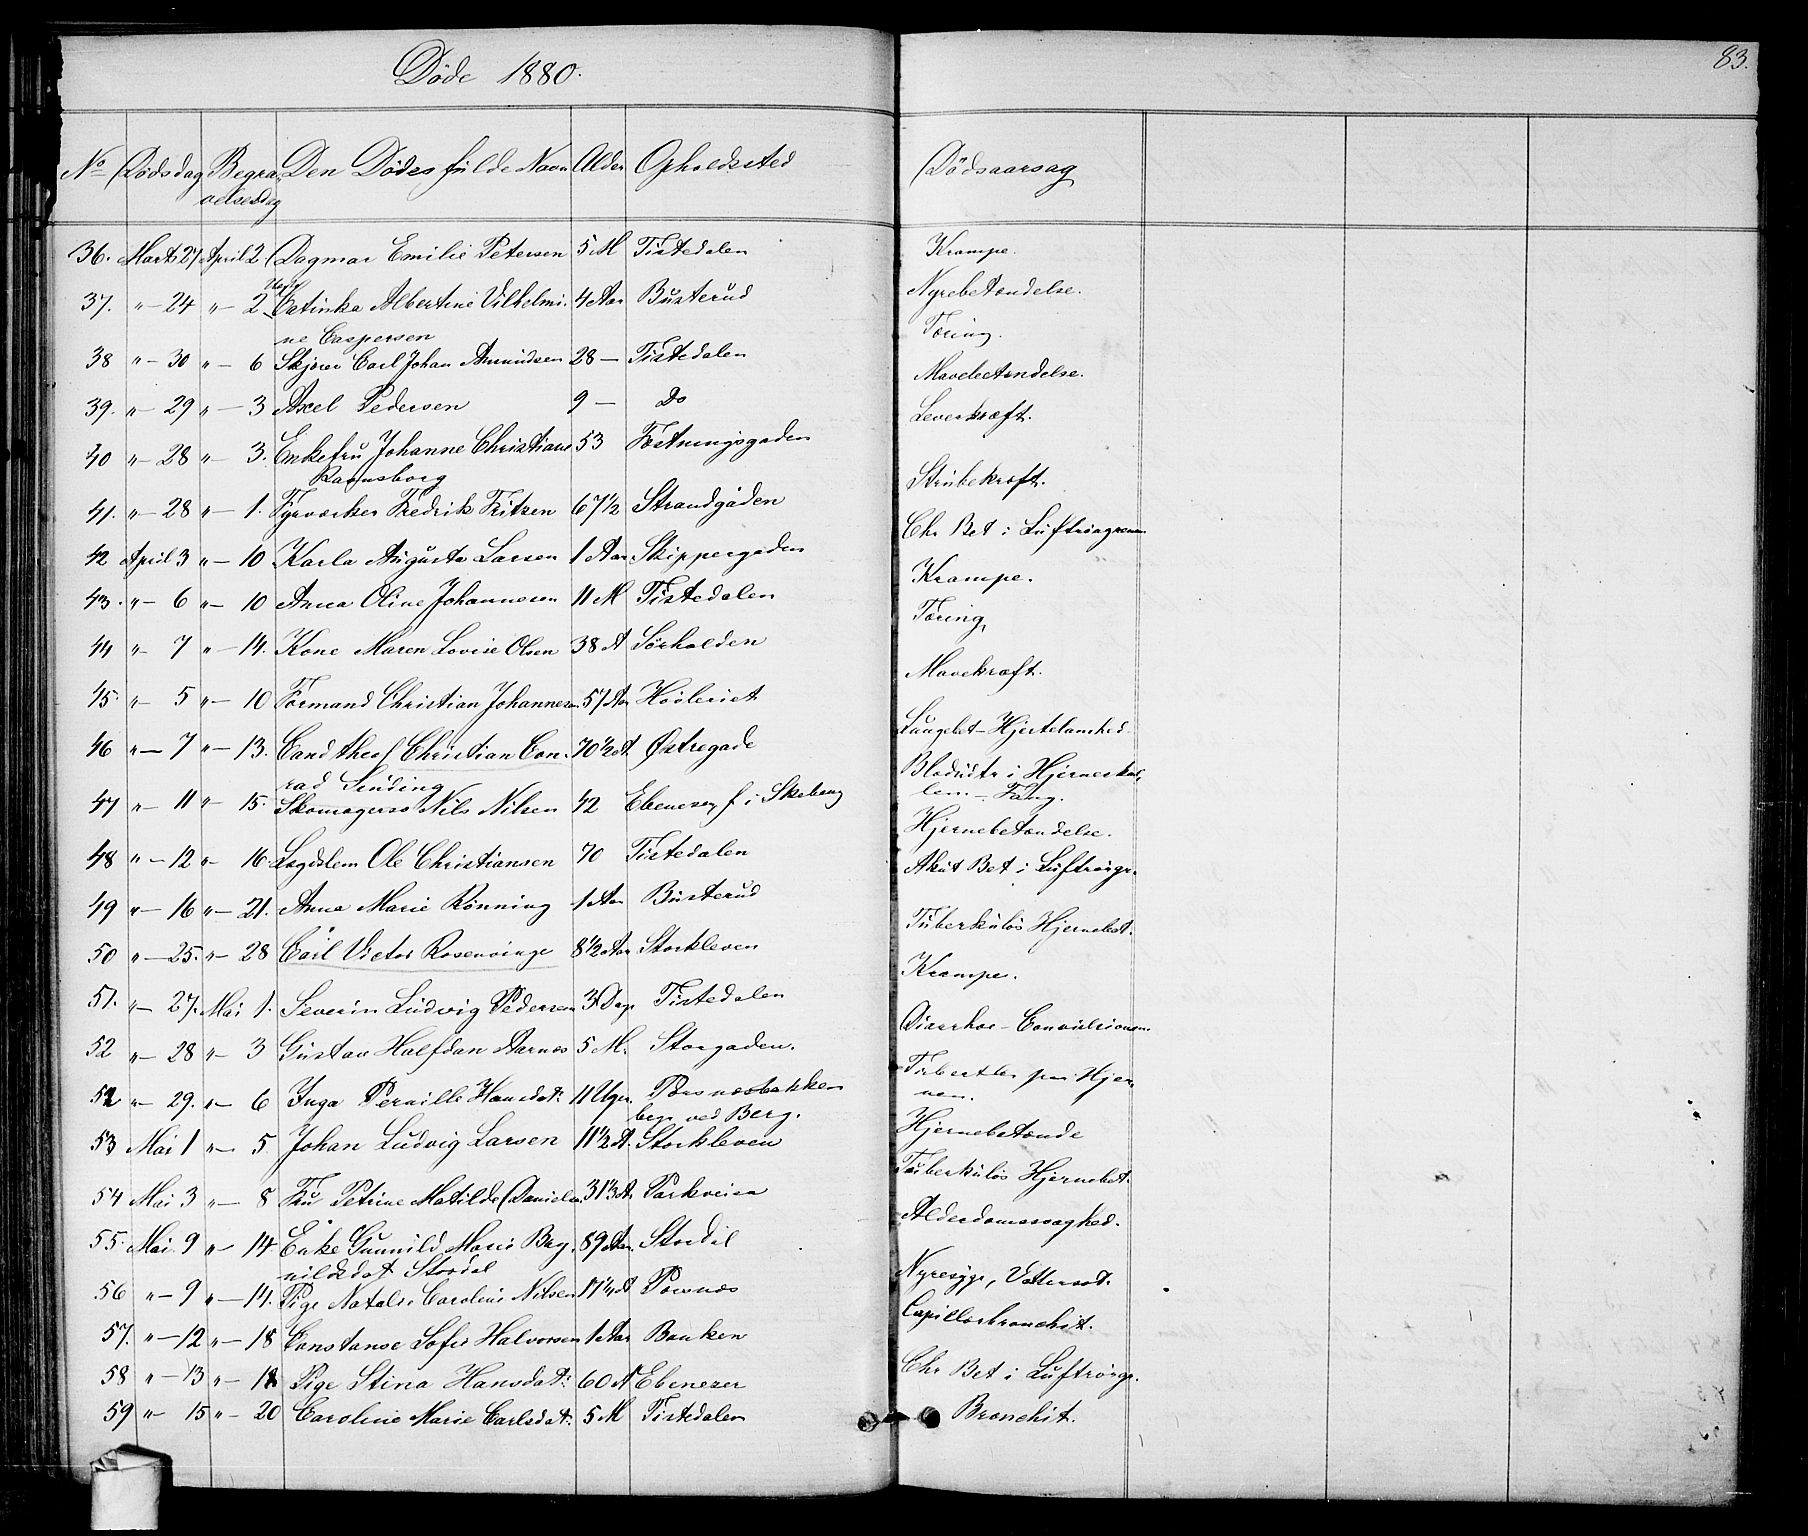 Døde 1880.
83.
No Dødsdag Begra- Den Dødes fulde Navn Alder Opholdssted Dødsaarsag
velsesdag
36. Marts 27 April 2 Dagmar Emilie Petersen 5 M Tistedalen Krampe.
37. " – 24 " – 2 Catinka Albertine Vilhelmi- 4 Aar Busterud Nyrebetændelse.
ne Caspersen
38 " – 30 " – 6 Skjører Carl Johan Amundsen 28 – Tistedalen Tæring.
39. " – 29 " – 3 Axel Pedersen 9 – Do Mavebetændelse.
40 " – 28 " – 3. Enkefru Johanne Christiane 53 Fæstningsgaden Leverkræft.
Ravnsborg
41. " – 28 " – 1. Fyrværker Fredrik Fritzen 67 1/2 Strandgaden Strubekræft.
42 April 3 " – 10 Karla Augusta Larsen 1 Aar Skippergaden Chr Bet i Luftrørgrenen
43. " – 6 " – 10 Anna Oline Johannesen 11 M Tistedalen Krampe.
44 " – 7 " – 14. Kone Maren Lovise Olsen 38 A Sørhalden Tæring,
45. " – 5 " – 10 Formand Christian Johannesen 57 Aar Høvleriet Mavekræft.
46 " – 7 " – 13. Cand theol Christian Con- 70 1/2 A. Østregade Lungebet – Hjertelamhed
rad Sinding
47 " – 11 " – 15. Skomagersv Nils Nilsen 42 Ebenezer, f i Skeberg Blodudtr i Hjerneskal-
len – Fang.
48 " – 12 " – 16. Lægdslem Ole Christiansen 70 Tistedalen Hjernebetændelse.
49 " – 16 " – 21. Anna Marie Rønning 1 Aar Busterud Akut Bet i Luftrørgr.
50 " – 25. " – 28 Carl Victor Rosenvinge 8 1/2 Aar Storkleven Tuberkuløs Hjernebet.
51. " – 27. Mai 1. Severin Ludvig Pedersen 3 Dage Tistedalen Krampe.
52 " – 28 " – 3 Gustav Halfdan Aarnes 5 M. Storgaden. Diarrhoe – Convulsionen
52 " – 29. " – 6 Inga Pernille Hansdat: 11 Uger. Pærsnesbakken Tuberkler paa Hjer-
begr ved Berg. nen.
53 Mai 1 " – 5. Johan Ludvig Larsen 11 1/2 A. Storkleven Hjernebetænde
54 Mai 3 " – 8 Fru Petrine Matilde Danielsen 31 1/3 A Parkveien Tuberkuløs Hjernebet.
55. Mai 9 " – 14 Enke Gunnild Marie Bry- 89 Aar. Stordal Alderdomssvaghed.
nildsdat Stordal
56 " – 9 " – 14. Pige Natalie Caroline Nilsen 17 1/4 A Porsnæs Nyresyge, Vattersot.
57. " – 12 " – 18 Constanse Sofie Halvorsen 1 Aar Banken Capillærbronchit.
58 " – 13 " – 18 Pige Stina Hansdat: 60 A Ebenezer Chr Bet i Luftrørgr.
59 " – 15 " – 20 Caroline Marie Carlsdat: 5 M Tistedalen Bronchit.